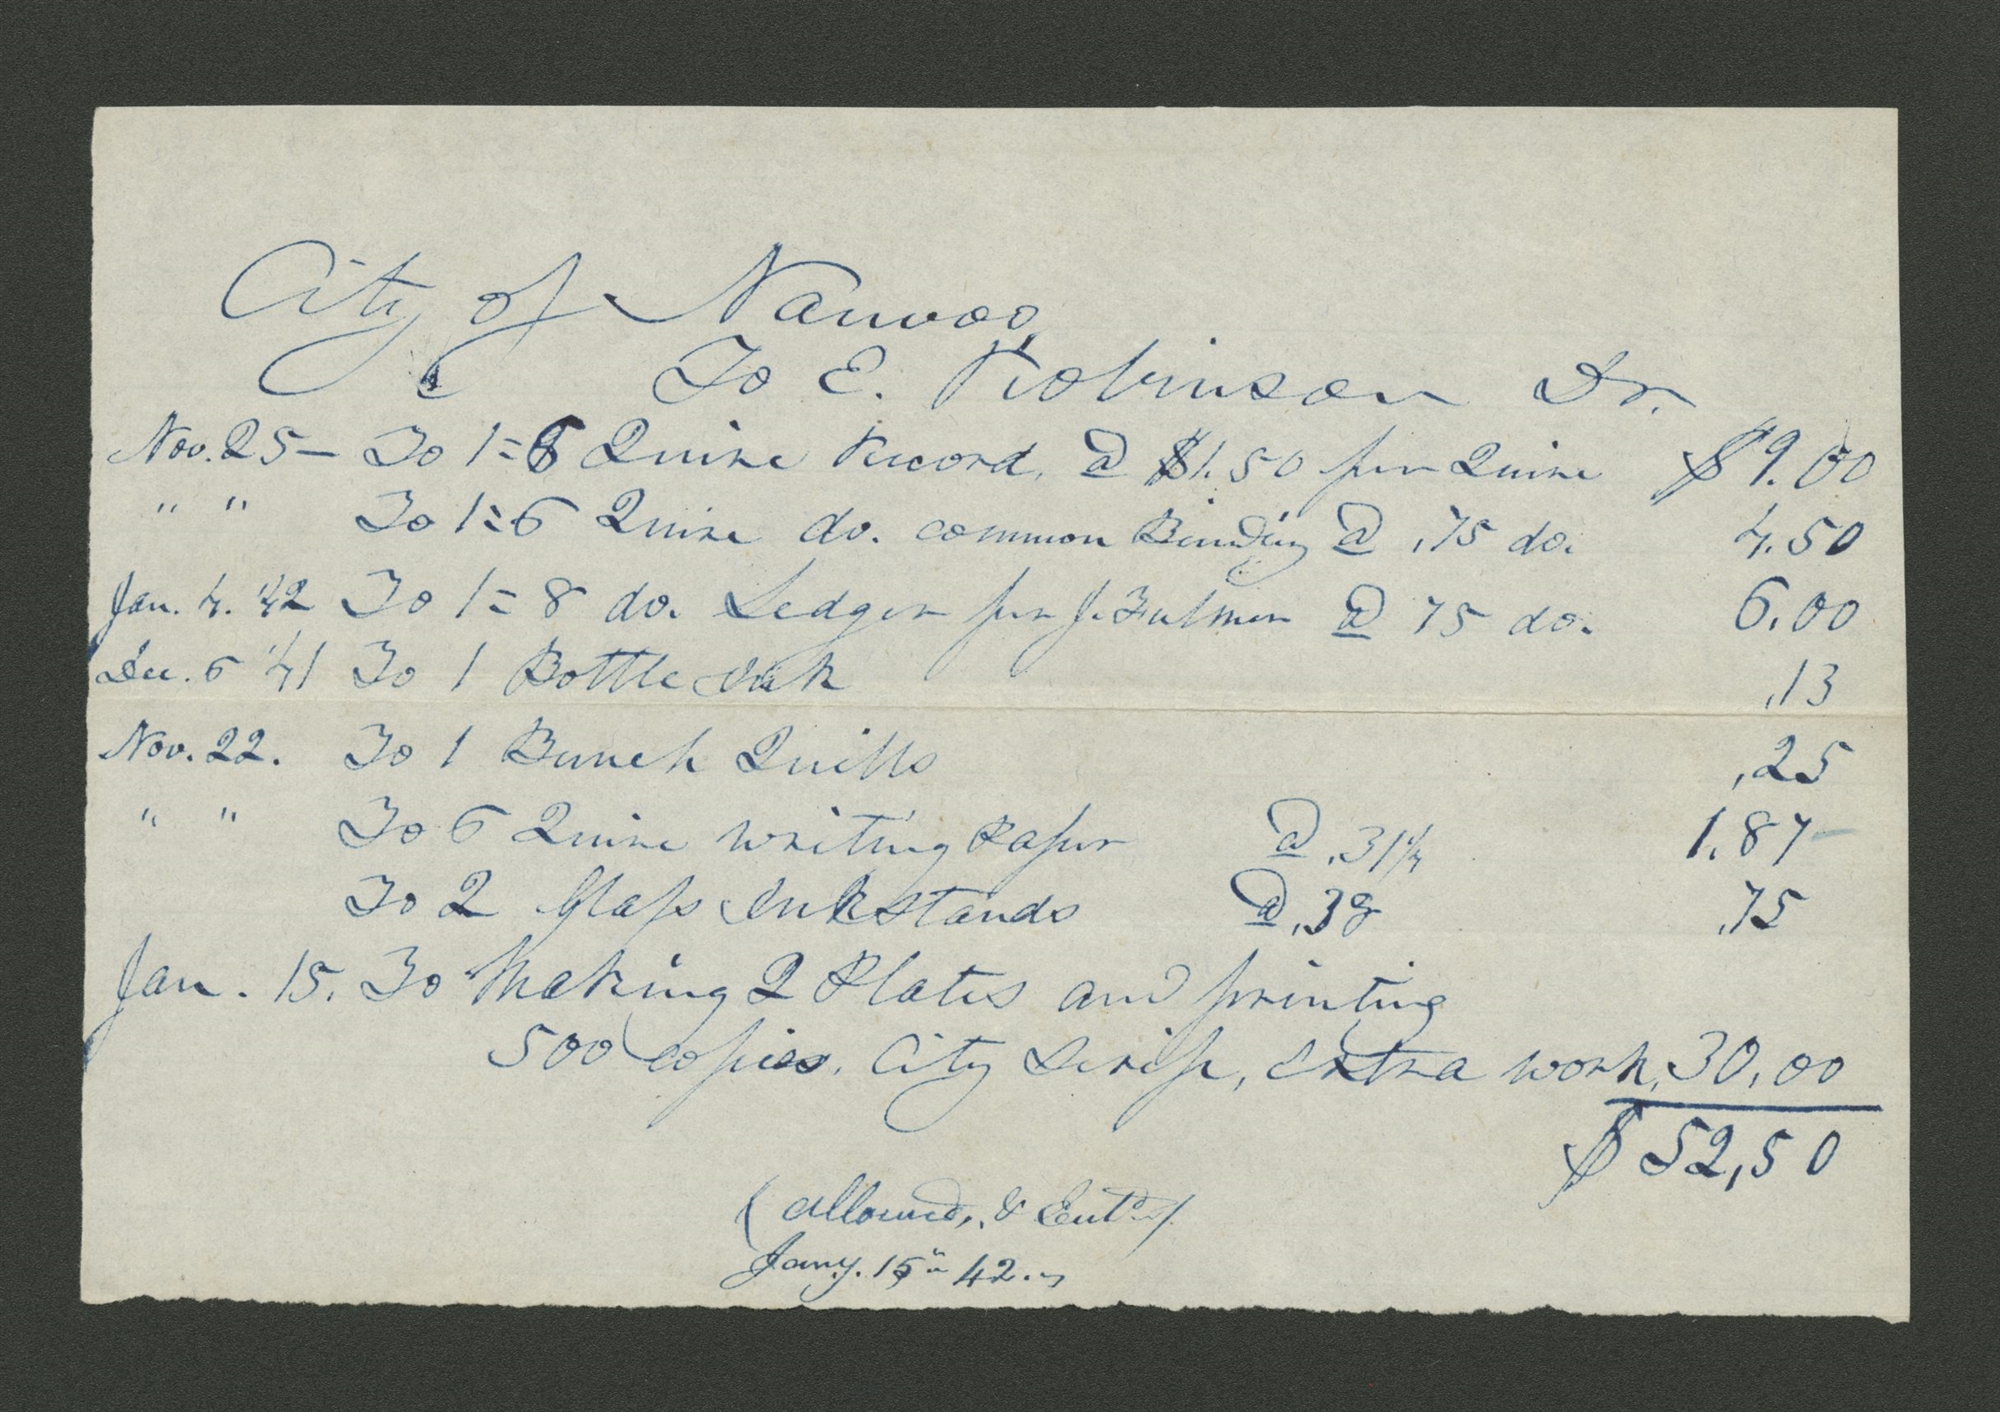 City of Nauvoo
To E. Robinson Dr.
Nov. 25 – To 1=6 Quire Record, @ $1.50 per Quire $9.00
" " To 1=6 Quire do. common Binding @ ,75 do. 4.50
Jan. 4. 42 To 1=8 do. Ledger per J. Fulmer @ 75 do. 6.00
Dec. 6 41 To 1 Bottle Ink ,13
Nov. 22. To 1 Bunch Quills ,25
" " To 6 Quire writing Paper @ .31¼ 1.87
To 2 Glass Inkstands @ .38 ,75
Jan. 15. To Making 2 Plates and printing
500 copies, City Scrip, extra work, 30,00
$52,50
(allowed, & Entd.)
Jany. 15" 42.